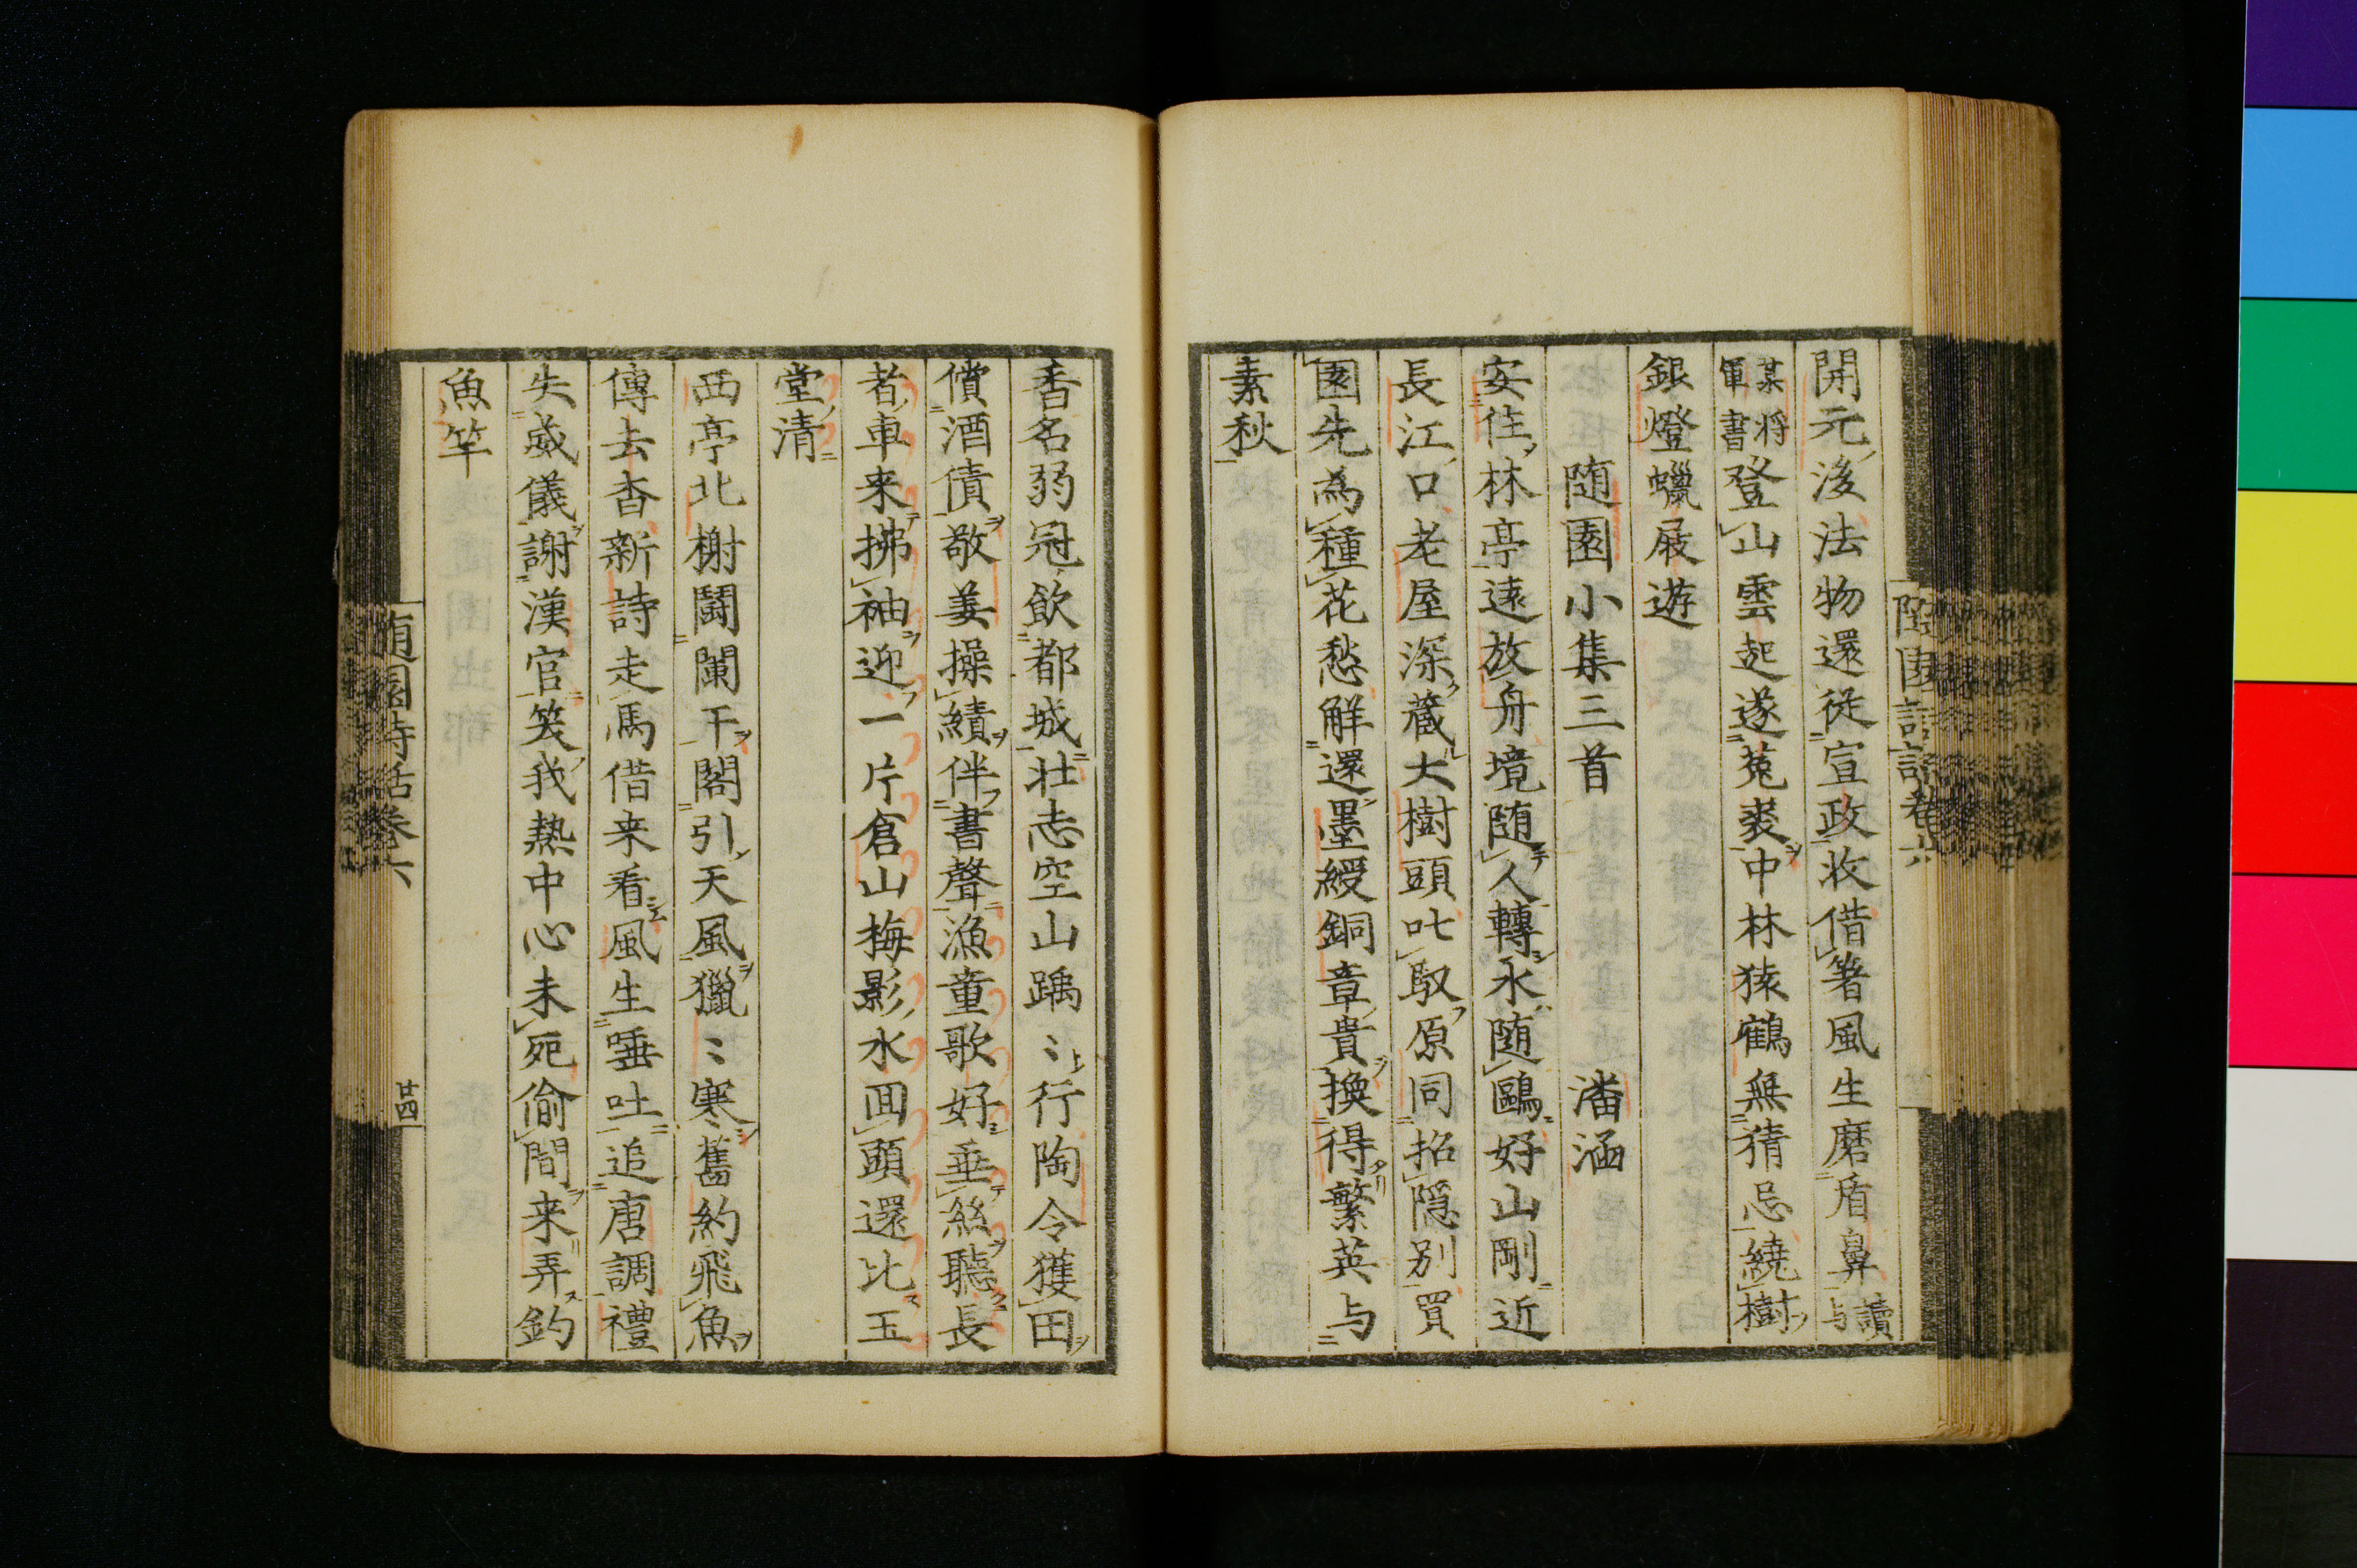 開元後法物還從宣政收借箸風生磨盾鼻讀与
某将軍書登山雲起遂菟裘中林猿鶴無猜忌繞樹
銀燈蠟屐遊
随園小集三首 潘涵
安住林亭遠放舟境随人轉永随鷗好山剛近
長江口老屋深蔵大樹頭叱馭原同招隠别買
園先為種花愁解還墨綬銅章貴換得繁英与
素秋
香名弱冠飲都城壮志空山踽〻行陶令獲田
償酒債敬姜操績伴書聲漁童歌好垂絲聽長
者車来拂袖迎一片倉山梅影水回頭還比玉
堂清
西亭北榭闘闌干閣引天風獵〻寒舊約飛魚
傳去杳新詩走馬借来看風生唾吐追唐調禮
失威儀謝漢官笑我熱中心未死偷間来弄釣
魚竿
随園詩話卷六
廿四